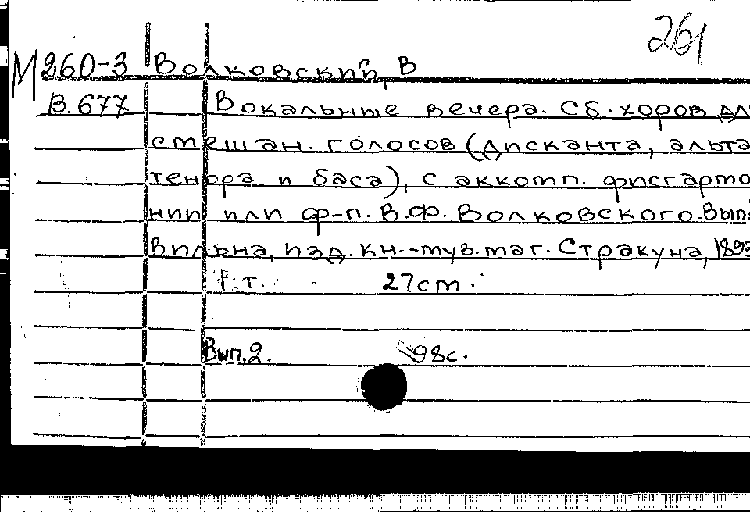 261
М 260-3 Волковский, В
В.677 Вокальные вечера. Сб. хоров дл
смешан. голосов (дисканта, альта
тенора и баса), с аккомп. фисгармо
нии или ф-п. В.Ф. Волковского. Вып.
Вильна, изд. кн.-муз. маг. Стракуна,
т. 27см.
Вып.2. 98с.